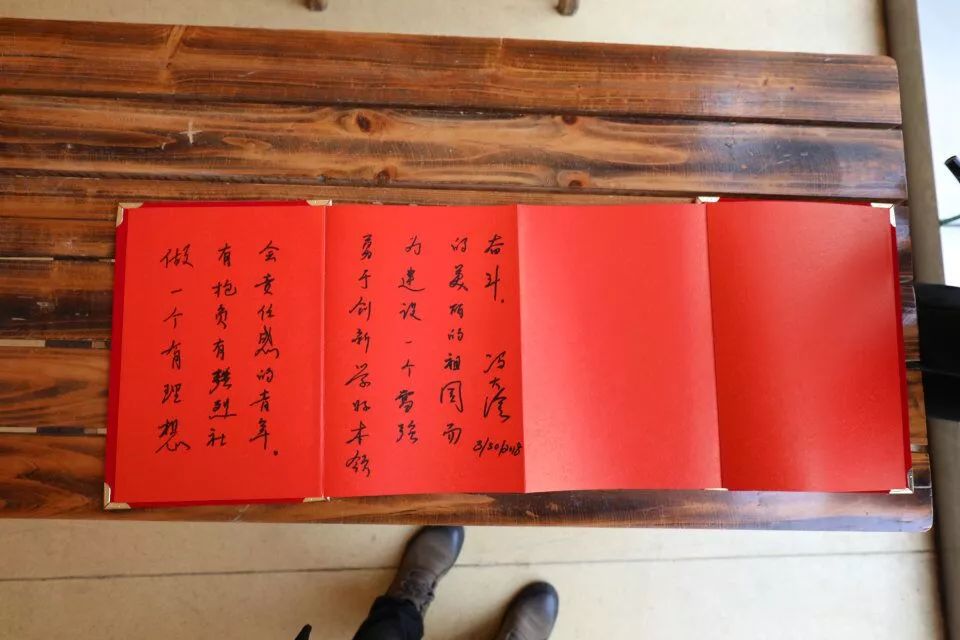 做一个有理想
有抱负有强烈社
会责任感的青年。
勇于创新学好本领
为建设一个富强
的美丽的祖国而
奋斗。
3/30/2018